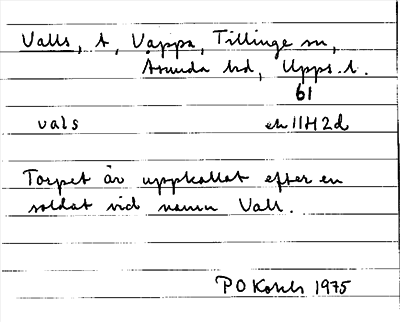 Valls, t, Väppa, Tillinge sn,
Åsunda hd, Upps. l.
61
vals ek 11H2d
Torpet är uppkallat efter en
soldat vid namn Vall.
P O Kohls 1975